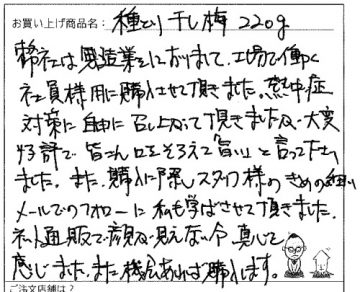 お買い上げ商品名: 種とり干し梅 220g
弊社は製造業をしておりまして、工場で働く
社員様用に購入させて頂きました。熱中症
対策に自由に召し上がって頂きましたが、大変
好評で皆さん口をそろえて「旨い」と言っており
ました。また、購入に際しスタッフ様のきめの細い
メールでのフォローに私も学ばさせて頂きました。
ネット通販で顔が見えない分、真心を
感じました。また機会あれば購入します。
ご注文店舗は?